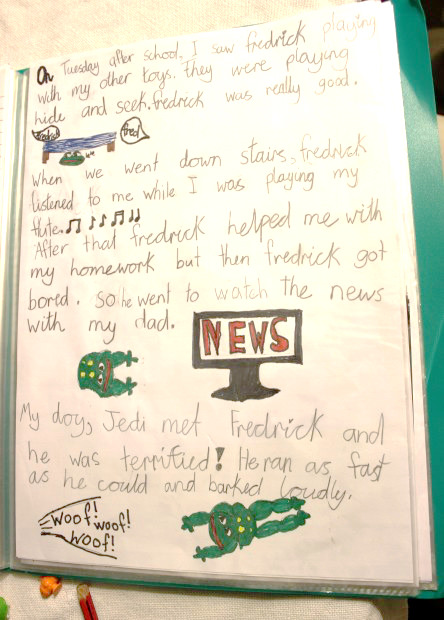 On Tuesday after school. I saw fredrick playing
with my other toys. they were playing
hide and seek. fredrick was really good.
fredrick
fred
we
When we went down stairs, fredrick
listened to me while I was playing my
flute.
After that fredrick helped me with
my homework but then fredrick got
bored. So he went to watch the news
with my dad.
NEWS
My dog, Jedi met Fredrick and
he was terrified! He ran as fast
as he could and barked loudly.
woof!
woof!
woof!